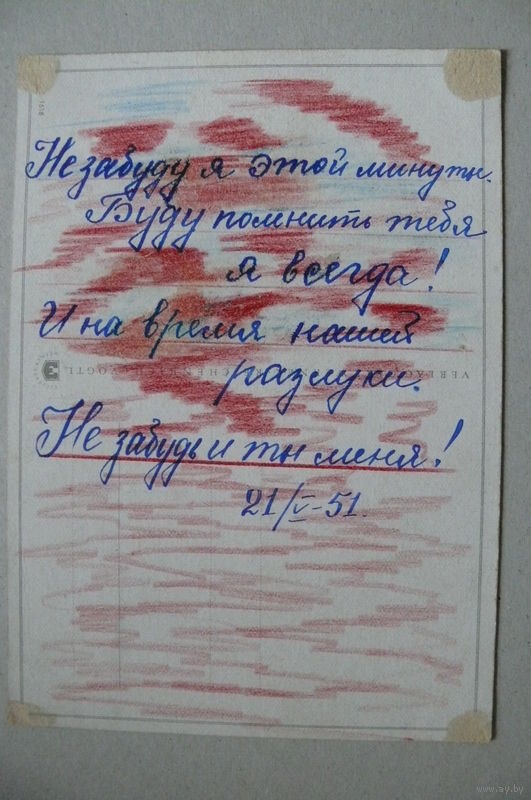 Не забуду я этой минуты.
Буду помнить тебя
я всегда!
И на время нашей
разлуки.
Не забудь и ты меня!
21/V-51.
www.ay.by